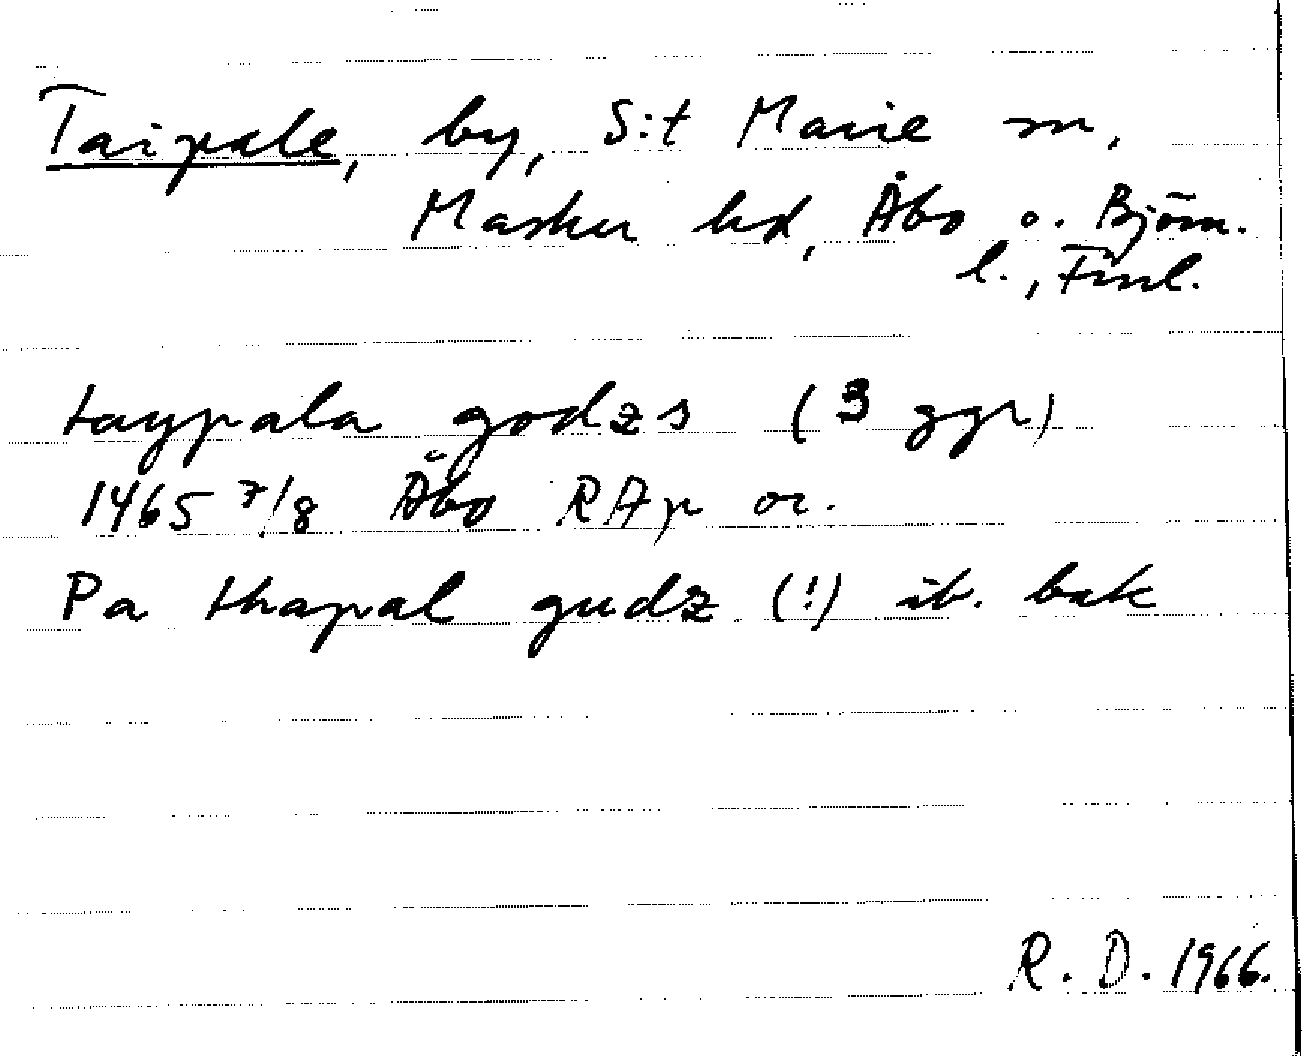 Taipale, by, S:t Marie sn,
Masku hd, Åbo o. Björn.
l., Finl.
taypala godzs (3 ggr)
1465 7/8 Åbo RAp or.
Pa thapal gudz (!) ib. bak
R. D. 1966.